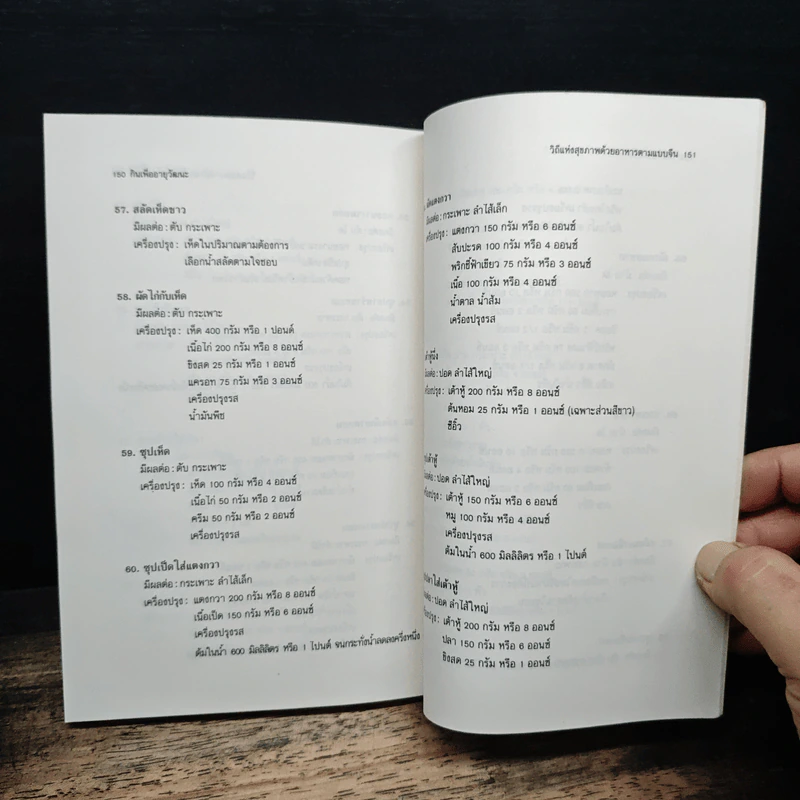 150 กินเพื่ออายุวัฒนะ
57. สลัดเห็ดขาว
มีผลต่อ: ตับ กระเพาะ
เครื่องปรุง: เห็ดในปริมาณตามต้องการ
เลือกน้ำสลัดตามใจชอบ
58. ผัดไก่กับเห็ด
มีผลต่อ: ตับ กระเพาะ
เครื่องปรุง: เห็ด 400 กรัม หรือ 1 ปอนด์
เนื้อไก่ 200 กรัม หรือ 8 ออนซ์
ขิงสด 25 กรัม หรือ 1 ออนซ์
แครอท 75 กรัม หรือ 3 ออนซ์
เครื่องปรุงรส
น้ำมันพืช
59. ซุปเห็ด
มีผลต่อ: ตับ กระเพาะ
เครื่องปรุง: เห็ด 100 กรัม หรือ 4 ออนซ์
เนื้อไก่ 50 กรัม หรือ 2 ออนซ์
ครีม 50 กรัม หรือ 2 ออนซ์
เครื่องปรุงรส
60. ซุปเป็ดใส่แตงกวา
มีผลต่อ: กระเพาะ ลำไส้เล็ก
เครื่องปรุง: แตงกวา 200 กรัม หรือ 8 ออนซ์
เนื้อเป็ด 150 กรัม หรือ 6 ออนซ์
เครื่องปรุงรส
ต้มในน้ำ 600 มิลลิลิตร หรือ 1 ไปนต์ จนกระทั่งน้ำลดลงครึ่งหนึ่ง
วิถีแห่งสุขภาพด้วยอาหารตามแบบจีน 151
ผัดแตงกวา
มีผลต่อ: กระเพาะ ลำไส้เล็ก
เครื่องปรุง: แตงกวา 150 กรัม หรือ 6 ออนซ์
สับปะรด 100 กรัม หรือ 4 ออนซ์
พริกชี้ฟ้าเขียว 75 กรัม หรือ 3 ออนซ์
เนื้อ 100 กรัม หรือ 4 ออนซ์
น้ำตาล น้ำส้ม
เครื่องปรุงรส
ปอด ลำไส้ใหญ่
เครื่องปรุง: เต้าหู้ 200 กรัม หรือ 8 ออนซ์
ต้นหอม 25 กรัม หรือ 1 ออนซ์ (เฉพาะส่วนสีขาว)
ซีอิ๊ว
ปอด ลำไส้ใหญ่
เครื่องปรุง: เต้าหู้ 150 กรัม หรือ 6 ออนซ์
หมู 100 กรัม หรือ 4 ออนซ์
เครื่องปรุงรส
ต้มในน้ำ 600 มิลลิลิตร หรือ 1 ไปนต์
ใส่เต้าหู้
ปอด ลำไส้ใหญ่
เต้าหู้ 200 กรัม หรือ 8 ออนซ์
ปลา 150 กรัม หรือ 6 ออนซ์
ขิงสด 25 กรัม หรือ 1 ออนซ์